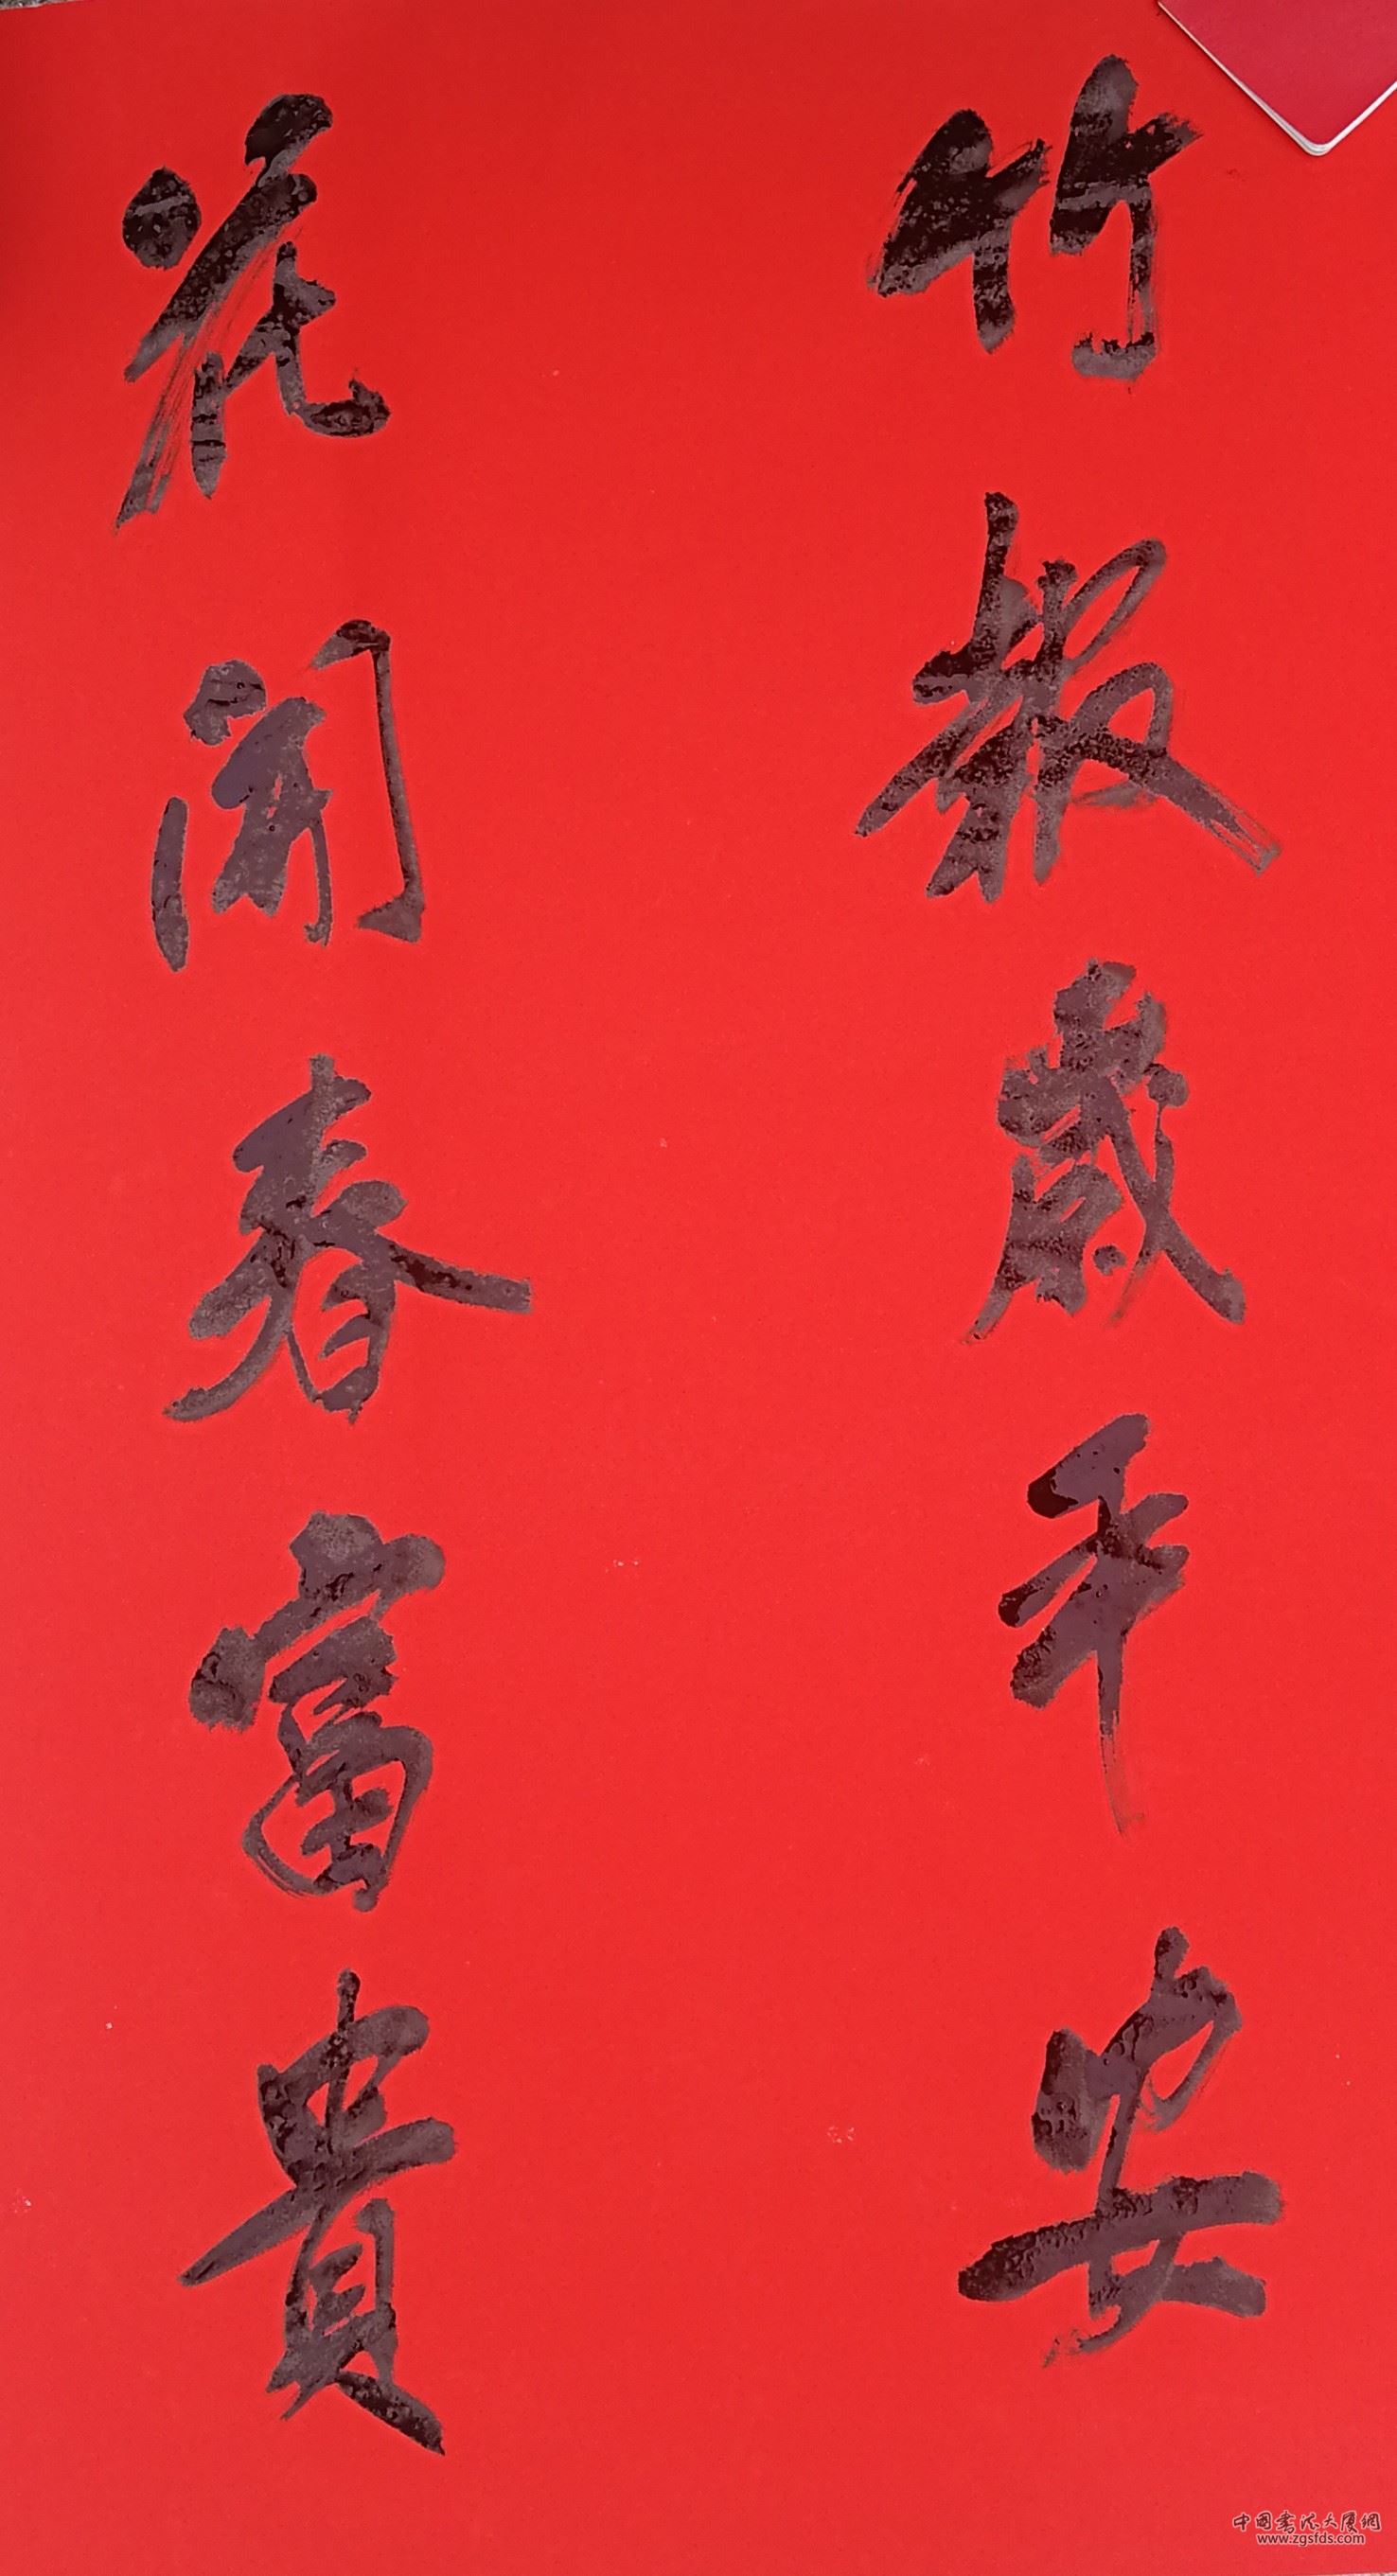 竹報歲平安
花開春富貴
中国书法大厦网
www.zgsfds.com